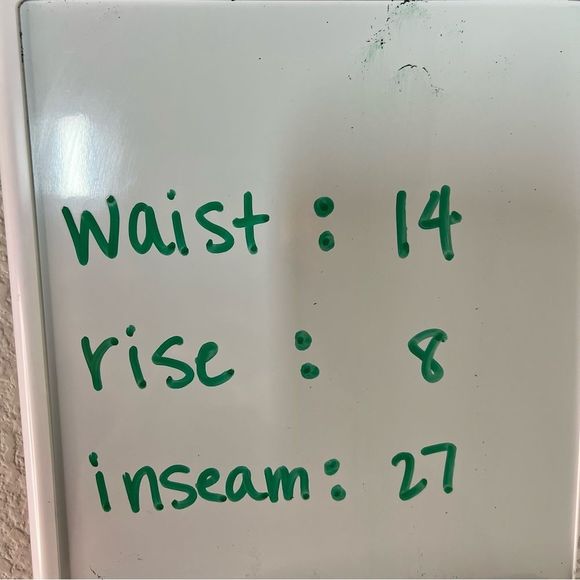 waist : 14
rise : 8
inseam : 27